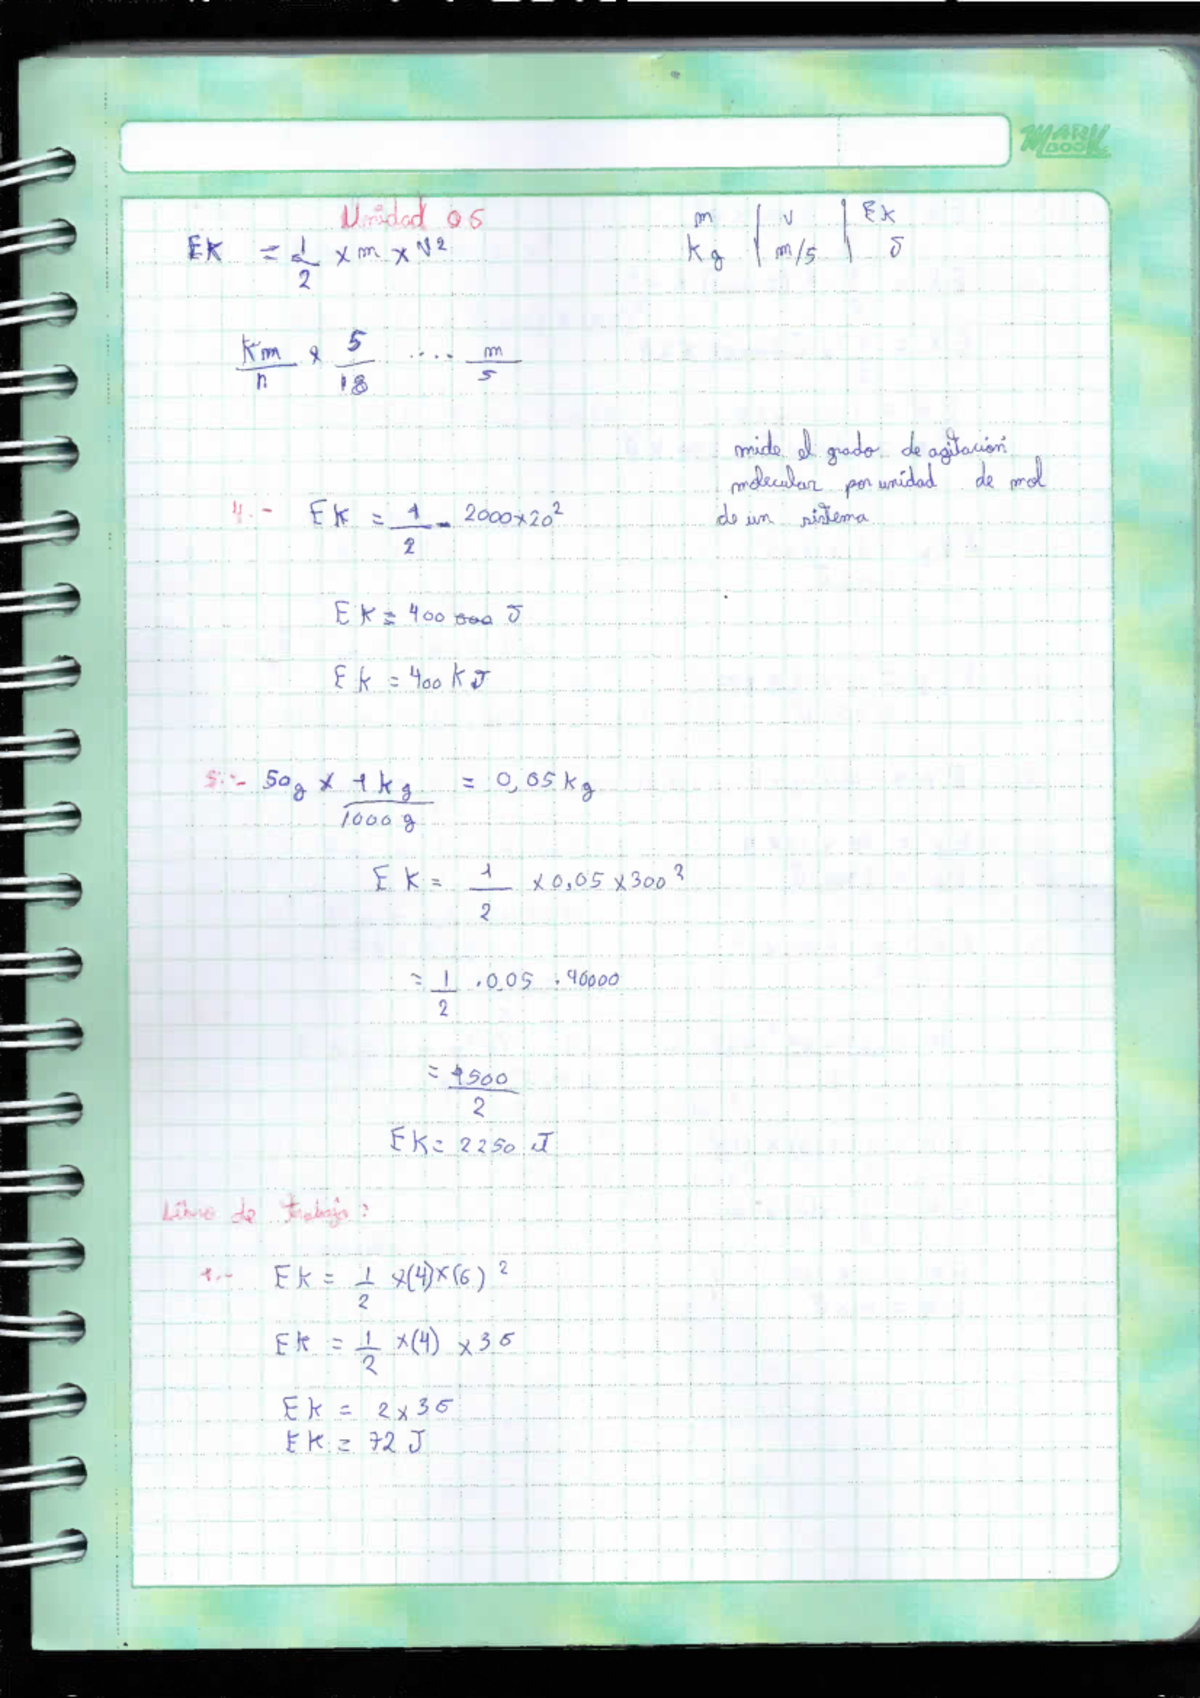 MARK BOOK
Unidad 05
m | v | EK
kg | m/s | J
EK = 1/2 x m x V²
Km/h x 5/18 .... m/s
mide el grado de agitación
molecular por unidad de mol
de un sistema
4.- EK = 1/2 - 2000x20²
EK = 400 000 J
EK = 400 KJ
5.- 50g x 1kg/1000g = 0,05kg
EK = 1/2 x 0,05 x 300²
= 1/2 . 0,05 . 90000
= 4500/2
EK = 2250 J
Libro de trabajo:
1.- EK = 1/2 x(4)x(6)²
EK = 1/2 x(4) x36
EK = 2x36
EK = 72 J